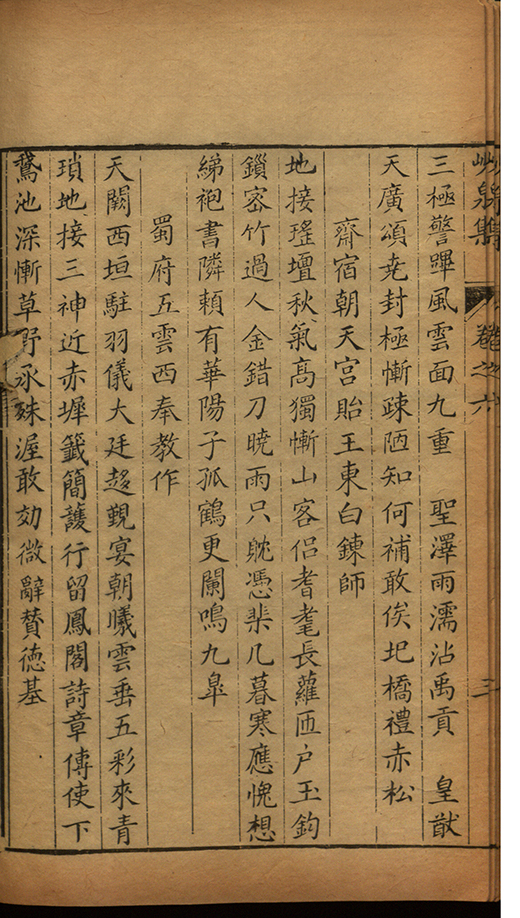 峴泉集 卷之六 三
三極警蹕風雲面九重 聖澤雨濡沾禹貢 皇猷
天廣頌尭封極慚疎陋知何補敢俟圯橋禮赤松
齋宿朝天宮貽王東白鍊師
地接瑤壇秋氣髙獨慚山客侶耆耄長蘿匝户玉鈎
鎖密竹過人金錯刀曉雨只躭憑棐几暮寒應愧想
綈袍書隣頼有華陽子孤鶴更闌鳴九臯
蜀府五雲西奉教作
天闕西垣駐羽儀大廷趍覲宴朝曦雲垂五彩來青
瑣地接三神近赤墀籤簡護行留鳳閣詩章傳使下
鵞池深慚草野承殊渥敢効微辭賛徳基